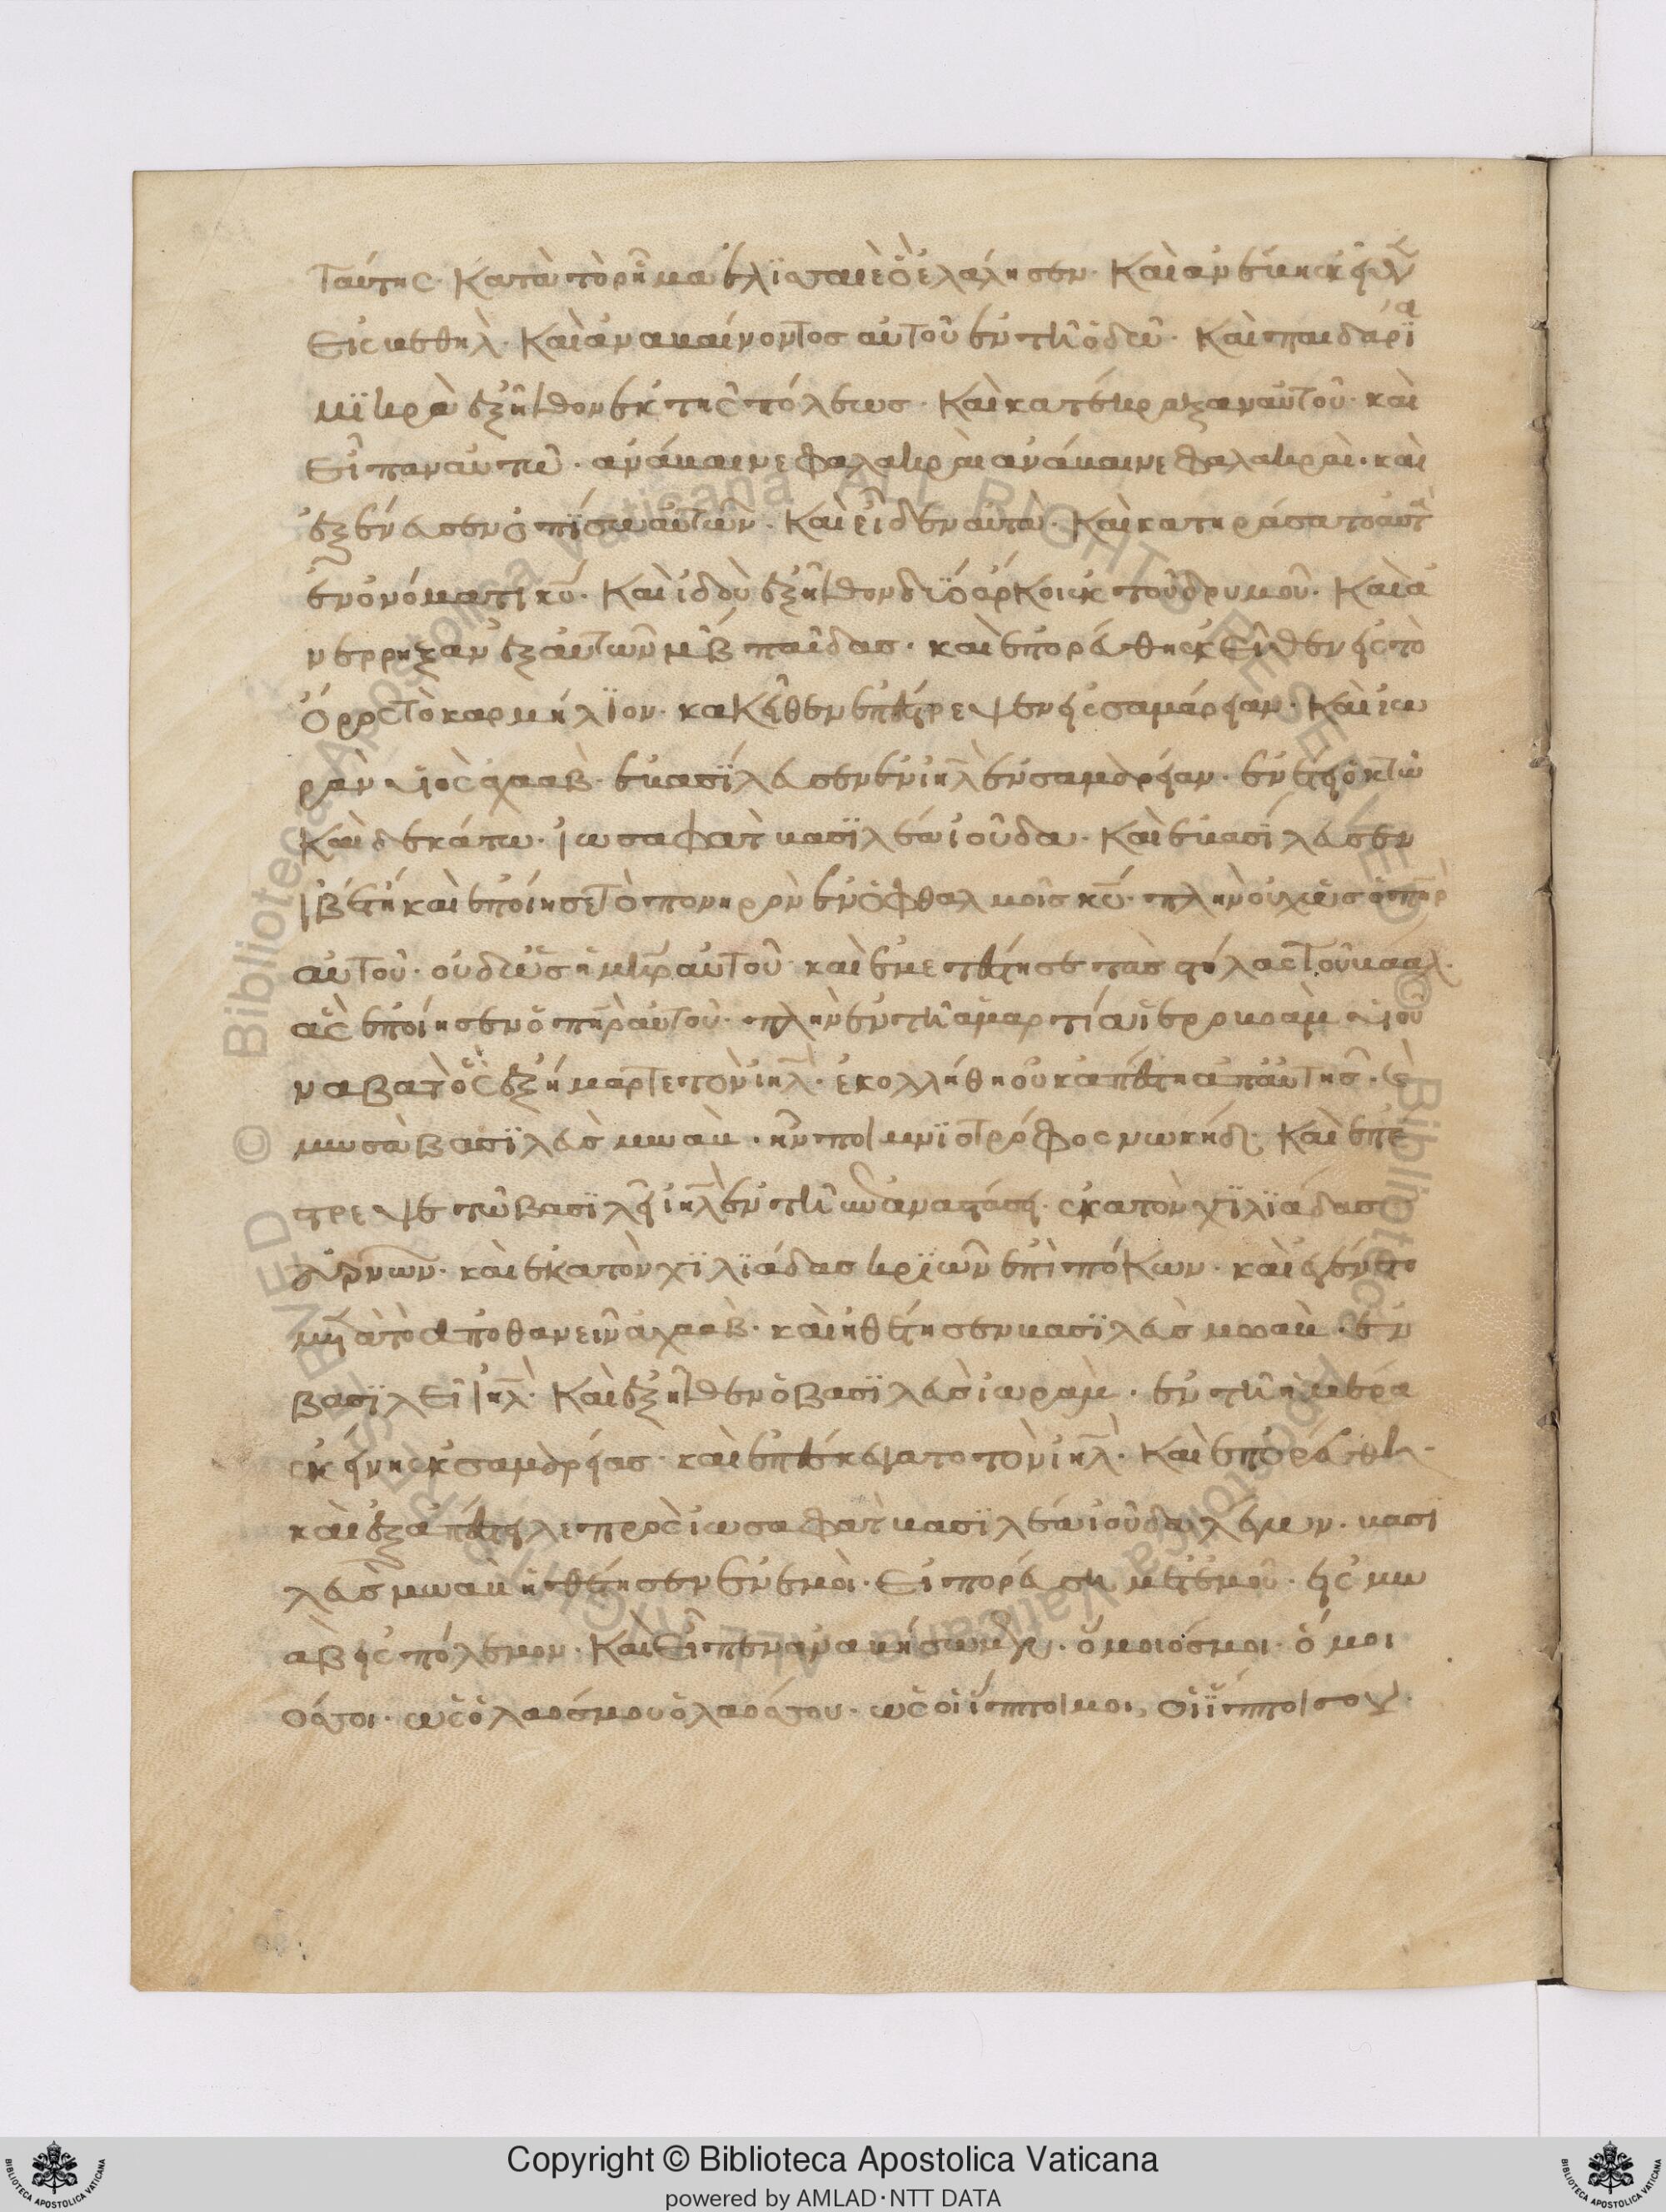 ταύτης· κατὰ τὸ ρῆμα ἐλϊσσαιὲ ὃ ἐλάλησεν· καὶ ἀνέβη ἐκεῖθεν
εἰς βεθηλ· καὶ ἀναβαίνοντος αὐτοῦ ἐν τῆ ὁδῶ· καὶ παιδάρϊα
μϊκρὰ ἐξῆλθον ἐκ τῆς πόλεως· καὶ κατέκραξαν αὐτοῦ· καὶ
εἶπαν αὐτῶ· ἀνάβαινε φαλακρὲ ἀνάβαινε φαλακρὲ· καὶ
ἐξένευσεν ὀπΐσω αὐτῶν· καὶ εἶδεν αὐτὰ· καὶ κατηράσατο αὐτὰ
ἐν ὀνόματι κυ· καὶ ἰδοὺ ἐξῆλθον δύο ἄρκοι ἐκ τοῦ δρυμοῦ· καὶ ἀ
νερρηξαν ἐξ αὐτῶν μβ παῖδας· καὶ ἐπορεύθη ἐκεῖθεν εἰς τὸ
ὄρος τὸ καρμήλϊον· κακεῖθεν ἐπέστρεψεν εἰς σαμάρειαν· καὶ ἰω
ρὰμ υἱὸς ἀχαὰβ· ἐβασΐλευσεν ἐν ιηλ ἐν σαμαρείαν· ἐν ἔτει ὀκτὼ
καὶ δεκάτω· ἰωσαφὰτ βασϊλέως ἰούδα· καὶ ἐβασΐλευσεν
ιβ ἔτη καὶ ἐποίησε τὸ πονηρὸν ἐν ὀφθαλμοῖς κυ· πλὴν οὐχ ὡς ὁ πηρ
αὐτοῦ· οὐδὲ ὡς ἡ μηρ αὐτοῦ καὶ ἐμετέστησε τὰς στήλας τοῦ βααλ·
ἃς ἐποίησεν ὁ πηρ αὐτοῦ· πλὴν ἐν τῆ ἁμαρτία ἱεροβοὰμ υἱοῦ
ναβατ ὃς ἐξήμαρτε τὸν ιηλ· ἐκολλήθη οὐκ ἀπέστη ἀπ αὐτῆς· καὶ
μωσὰ βασϊλεὺς μωαβ· ἦν ποιμνϊοτρόφος νωκήδ· καὶ ἐπέ
στρεψε τῶ βασϊλεῖ ιηλ ἐν τῆ ἐπαναστάσει· ἑκατὸν χϊλϊάδας
ἀρνῶν· καὶ ἑκατὸν χϊλϊάδας κρϊῶν ἐπὶ πόκων· καὶ ἐγένετο
μετὰ τὸ ἀποθανεῖν ἀχαὰβ· καὶ ἠθέτησεν βασϊλεὺς μωαβ· ἐν
βασϊλεῖ ιηλ· καὶ ἐξῆλθεν ὁ βασϊλεὺς ἰωραμ· ἐν τῆ ἡμέρα
ἐκείνη ἐκ σαμαρείας· καὶ ἐπεσκέψατο τὸν ιηλ· καὶ ἐπορεύθη·
καὶ ἐξαπέστειλε πρὸς ἰωσαφὰτ βασϊλέα ἰούδα λέγων· βασϊ
λεὺς μωαβ ἠθέτησεν ἐν ἐμοὶ· εἰ πορεύση μετ ἐμοῦ· εἰς μω
αβ εἰς πόλεμον· καὶ εἶπεν ἀναβήσομαι· ὅμοιός μοι· ὅμοι
ός σοι· ὡς ὁ λαός μου ὁ λαός σου· ὡς οἱ ἵπποι μου, οἱ ἵπποι σου·
Copyright © Biblioteca Apostolica Vaticana
powered by AMLAD·NTT DATA